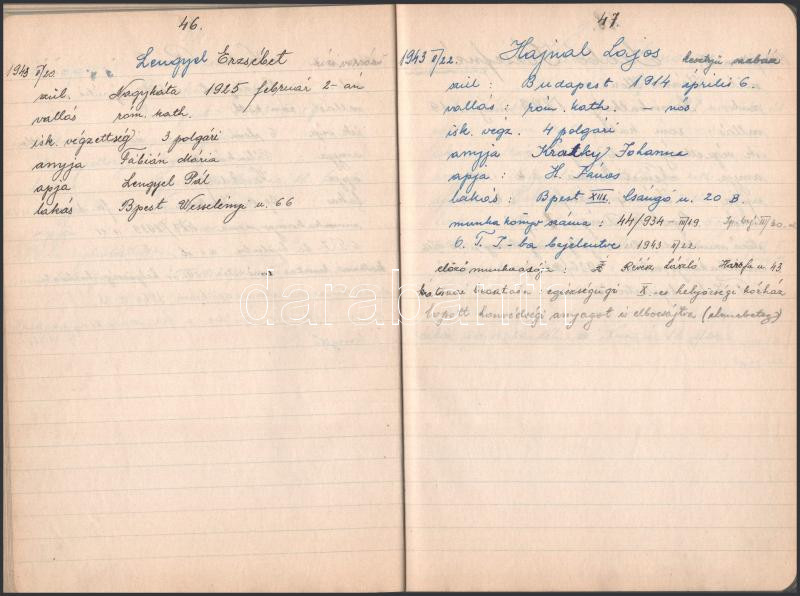 46.
1943 II/20. Lengyel Erzsébet
szül. Nagykáta 1925 február 2-án
vallás róm. kath.
isk. végzettség 3 polgári
anyja Fábián Mária
apja Lengyel Pál
lakás Bpest Wesselényi u. 66
47.
1943 II/22. Hajnal Lajos kesztyű szabász
szül: Budapest 1914 április 6.
vallás: róm. kath. – nős
isk. végz. 4 polgári
anyja Kratky Johanna
apja: H. János
lakás: Bpest XIII. Csángó u. 20 B.
munkakönyv száma: 44/934 - III/19
O.T.I-ba bejelentve 1943 II/22
előző munkaadója: Révész László Hársfa u. 43.
egészségügi X-es helyőrségi kórház
lopott honvédségi anyagot is elbocsájtva (elmebeteg)
darabanth